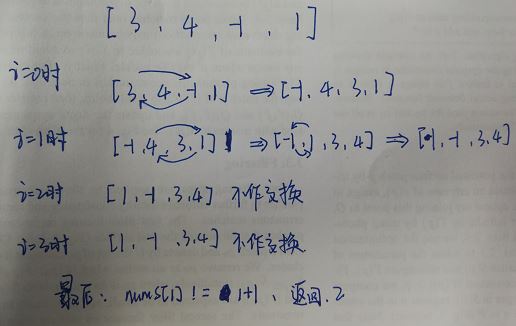 [3, 4, -1, 1]
i=0时 [3, 4, -1, 1] ⇒ [-1, 4, 3, 1]
i=1时 [-1, 4, 3, 1] ⇒ [-1, 1, 3, 4] ⇒ [1, -1, 3, 4]
i=2时 [1, -1, 3, 4] 不作交换
i=3时 [1, -1, 3, 4] 不作交换
最后: nums[1] != 1+1, 返回 2